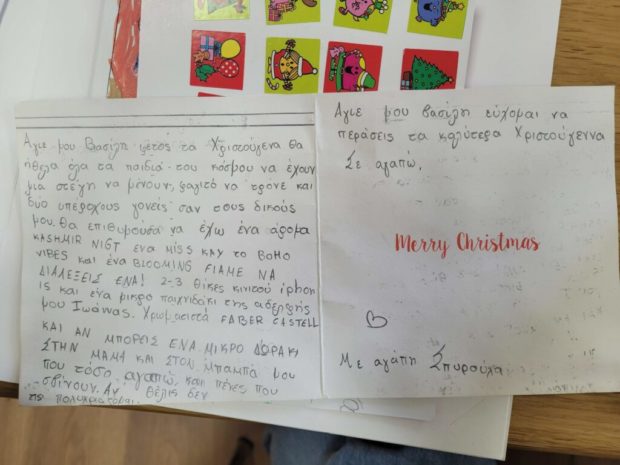 Αγιε μου Βασίλη φέτος τα Χριστούγενα θα
ήθελα όλα τα παιδιά του κόσμου να έχουν
μια στέγη να μένουν, φαγιτό να τρόνε και
δύο υπέροχους γονείς σαν τους δικούς
μου. Θα επιθυμούσα να έχω ένα άρομα
KASHMIR NIGT ενα MISS KAY το BOHO
VIBES και ένα BLOOMING FLAME ΝΑ
ΔΙΑΛΕΞΕΙΣ ΕΝΑ! 2-3 θίκες κινιτού iphon
και ένα μικρο παιχνιδάκι της αδερφής
μου Ιωάνας. Χρωματιστά FABER CASTELL
ΚΑΙ ΑΝ ΜΠΟΡΕΙΣ ΕΝΑ ΜΙΚΡΟ ΔΩΡΑΚΙ
ΣΤΗΝ ΜΑΜΑ ΚΑΙ ΣΤΟΝ ΜΠΑΜΠΑ μου
που τόσο αγαπώ, και πένες που
σβίνουν. Αν θέλις δεν
Αγιε μου Βασίλη εύχομαι να
περάσεις τα καλύτερα Χριστούγεννα
Σε αγαπώ,
Merry Christmas
Με αγάπη Σπυρούλα